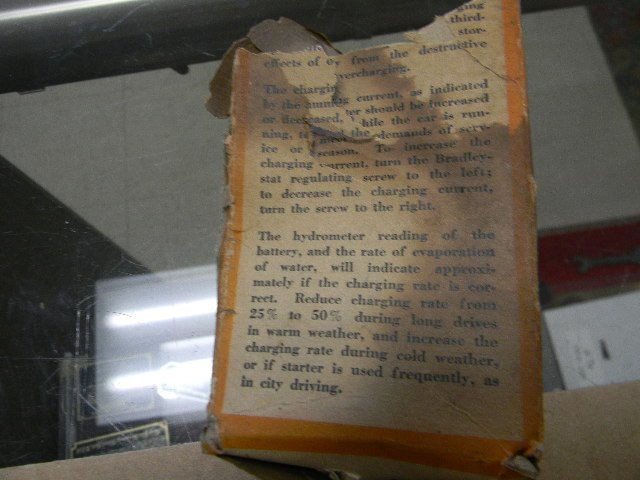 ging
third-
stor-
effects of from the destructive
vercharging.
The chargin current, as indicated
by the ammeter should be increased
or decreased, while the car is run-
ning, to meet the demands of serv-
ice or season. To increase the
charging current, turn the Bradley-
stat regulating screw to the left;
to decrease the charging current,
turn the screw to the right.
The hydrometer reading of the
battery, and the rate of evaporation
of water, will indicate approxi-
mately if the charging rate is cor-
rect. Reduce charging rate from
25% to 50% during long drives
in warm weather, and increase the
charging rate during cold weather,
or if starter is used frequently, as
in city driving.